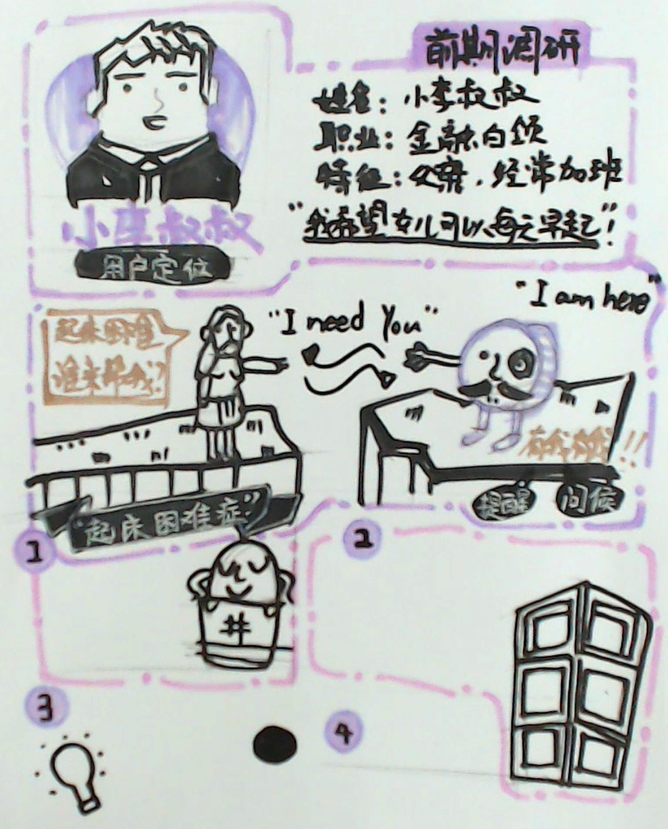 前期调研
姓名：小李叔叔
职业：金融白领
特征：父亲，经常加班
"我希望女儿可以每天早起！"
小李叔叔
用户定位
"I am here"
"I need You"
起床困难
谁来帮我?!
有我在!!
"起床困难症"
提醒 问候
1
2
井
3
4